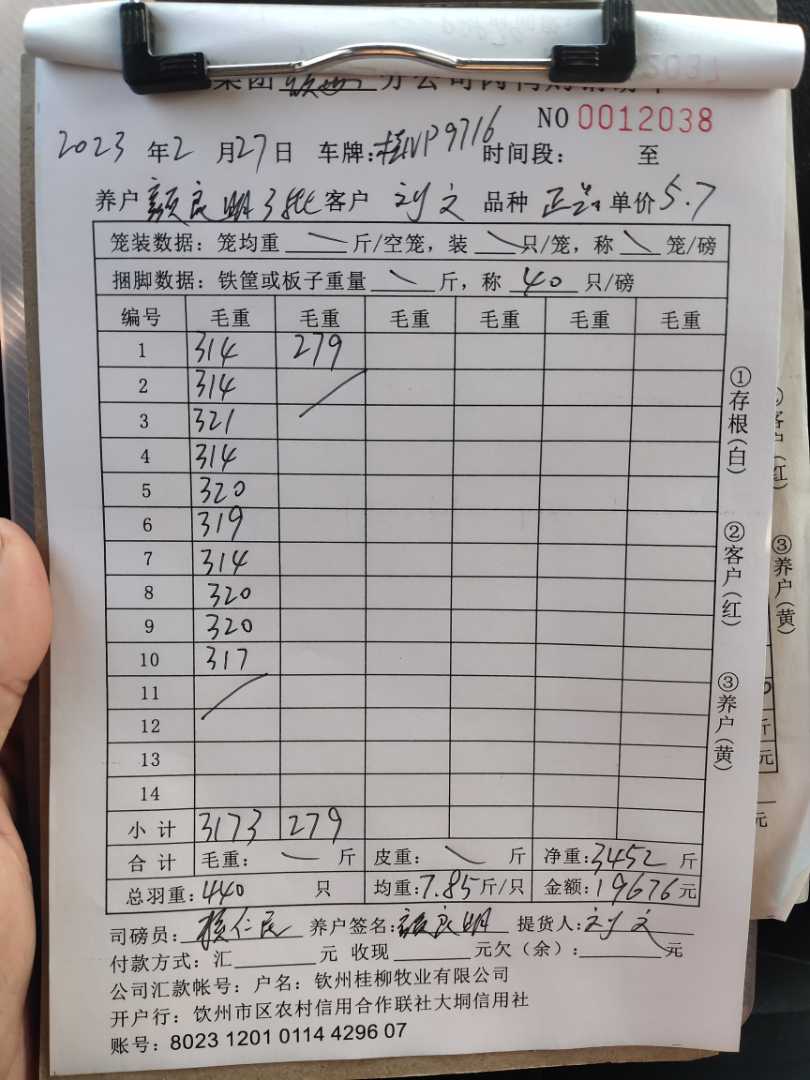 集团 钦州 分公司肉
NO 0012038
2023 年 2 月 27 日 车牌: 桂NP9716 时间段: 至
养户 颜良明3批 客户 刘文 品种 单价 5.7
笼装数据: 笼均重 斤/空笼, 装 只/笼, 称 笼/磅
捆脚数据: 铁筐或板子重量 斤, 称 40 只/磅
编号 毛重 毛重 毛重 毛重 毛重 毛重
1 314 279
2 314
3 321
4 314
5 320
6 319
7 314
8 320
9 320
10 317
11
12
13
14
小 计 3173 279
合 计 毛重: 斤 皮重: 斤 净重: 3452 斤
总羽重: 440 只 均重: 7.85 斤/只 金额: 19676 元
司磅员: 养户签名: 颜良明 提货人: 刘文
付款方式: 汇 元 收现 元欠(余): 元
公司汇款帐号: 户名: 钦州桂柳牧业有限公司
开户行: 钦州市区农村信用合作联社大垌信用社
账号: 8023 1201 0114 4296 07
①存根(白)
②客户(红)
③养户(黄)
③养户(黄)
斤
元
元